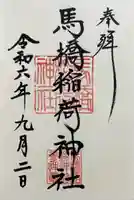 奉拝
馬橋稲荷神社
令和六年九月二日